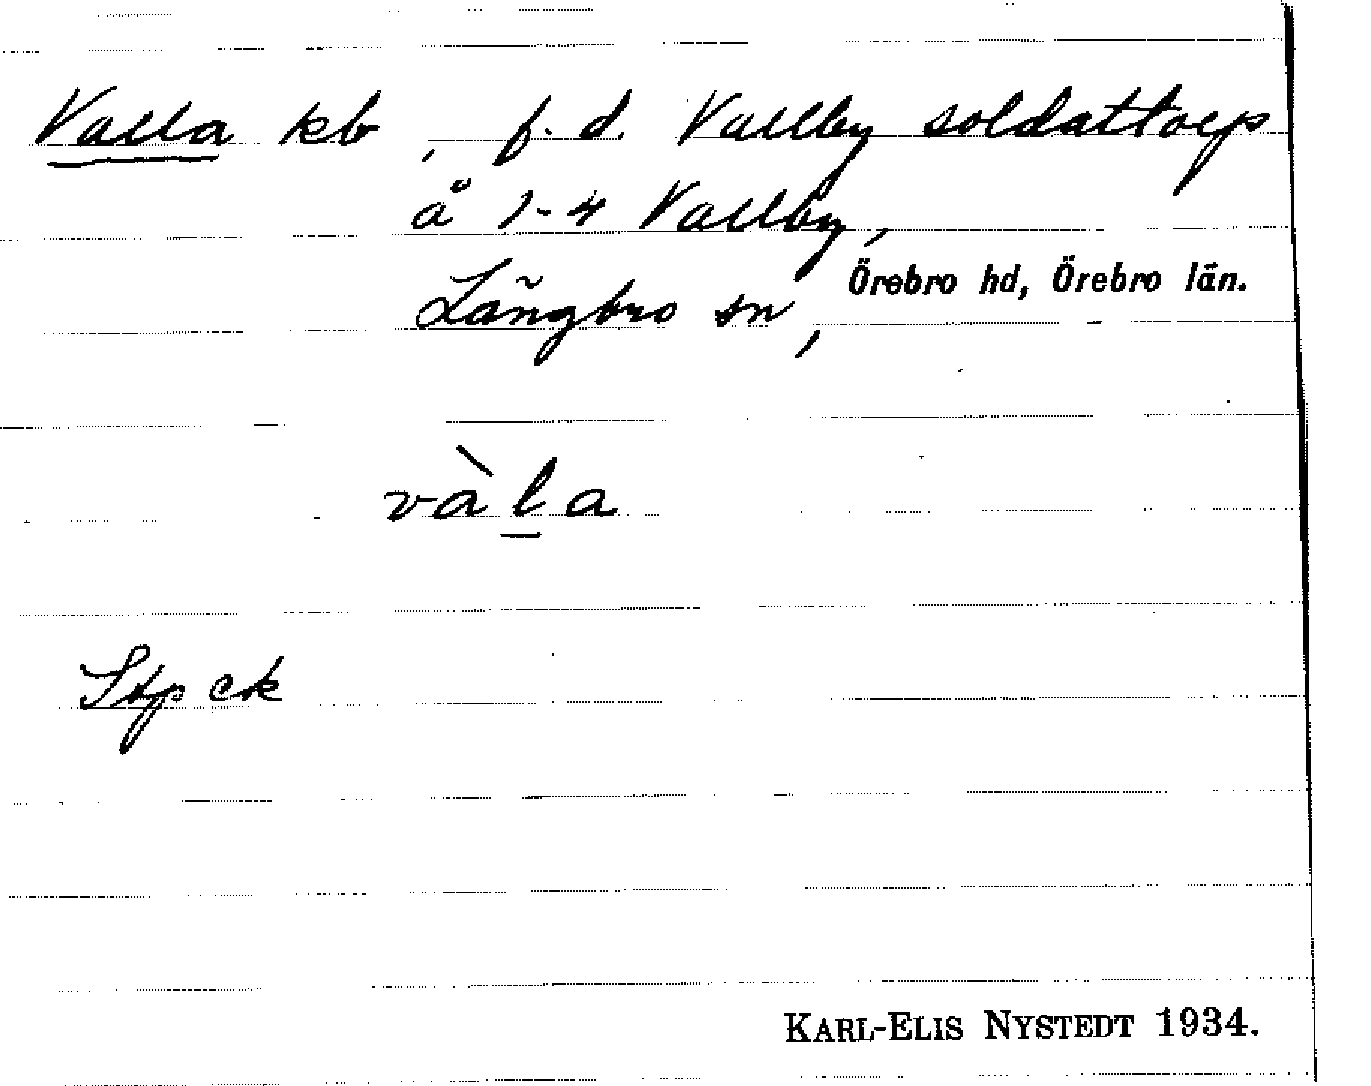 Valla kb, f. d. Vallby soldattorp
å 1-4 Vallby,
Långbro sn, Örebro hd, Örebro län.
vàla
Stp ek
KARL-ELIS NYSTEDT 1934.